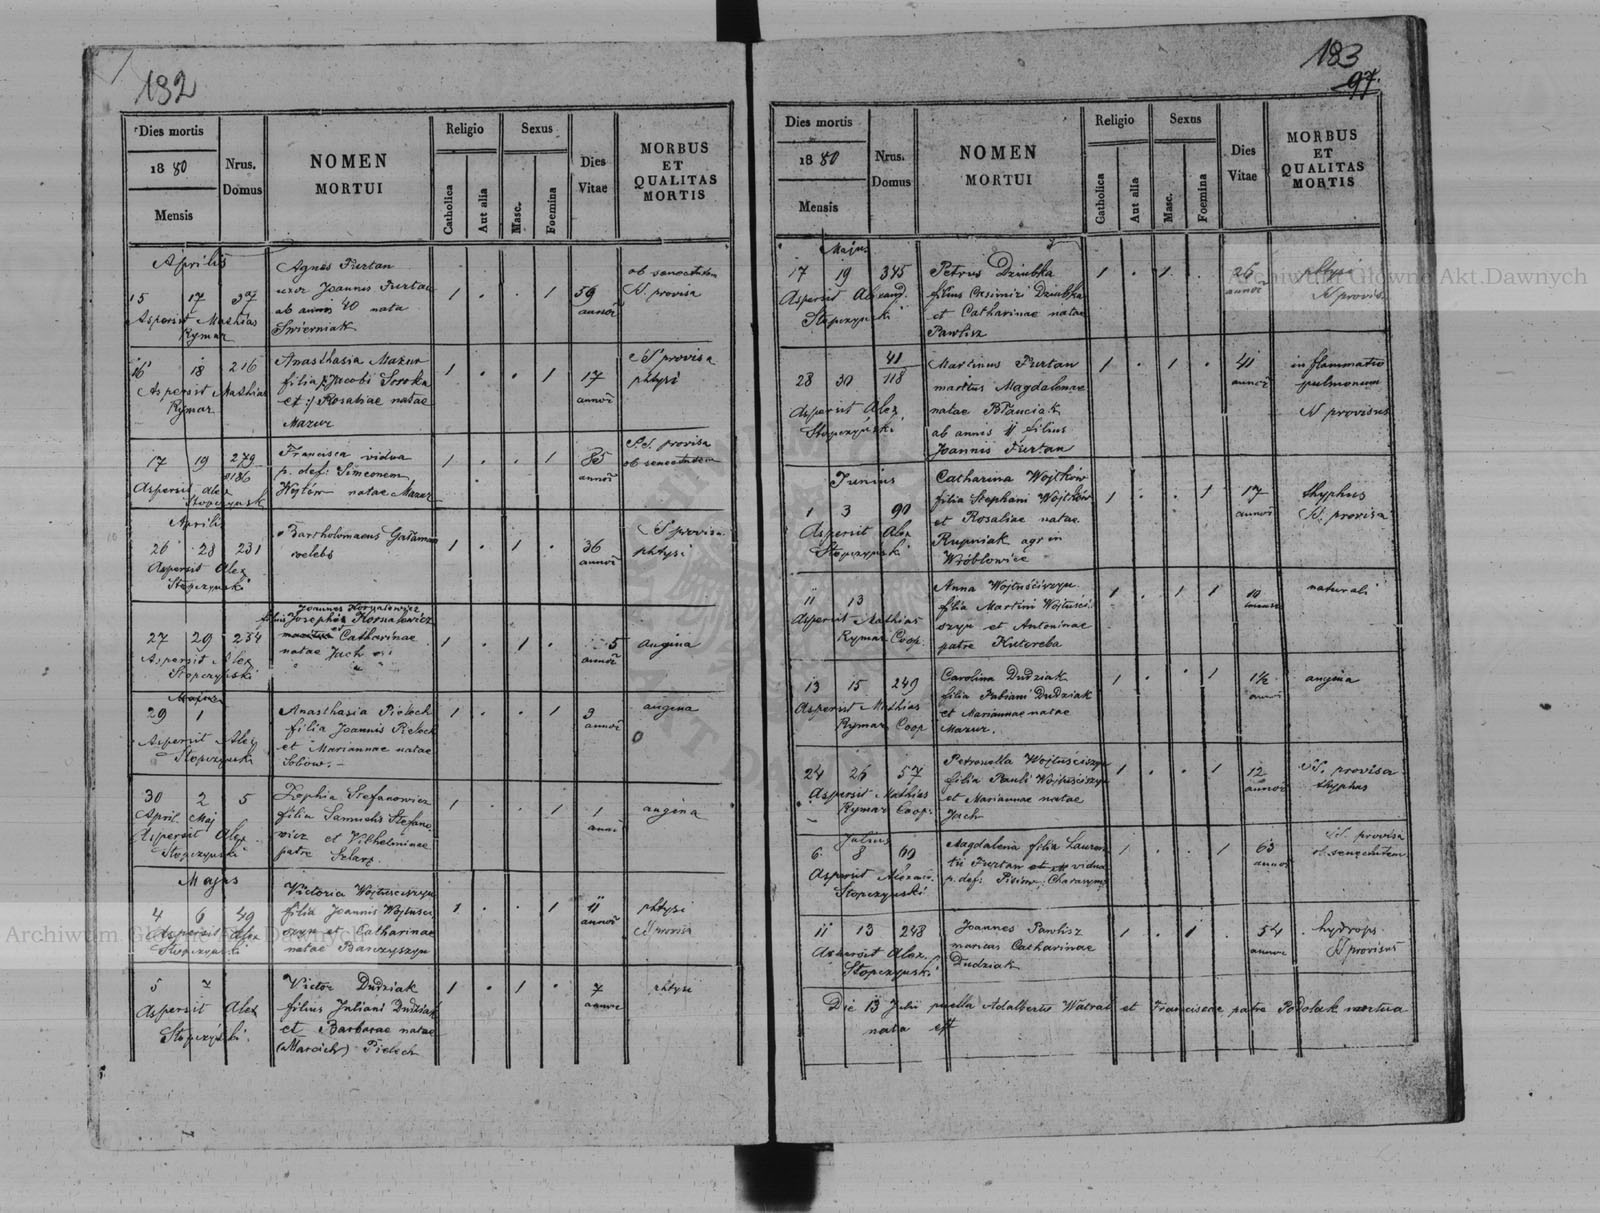 182
Dies mortis
1880
Mensis
Nrus.
Domus
NOMEN
MORTUI
Religio
Catholica
Aut alia
Sexus
Masc.
Foemina
Dies
Vitae
MORBUS
ET
QUALITAS
MORTIS
Aprilis
15 17 37
Aspersit Mathias
Rymar
Agnes Furtan
uxor Joannis Furtan
ab annis 40 nata
Swierniak
1 . . 1
59
annor
ob senectutem
SS. provisa
16 18 216
Aspersit Mathias
Rymar
Anasthasia Mazur
filia Jacobi Soroka
et Rosaliae natae
Mazur
1 . . 1
17
annor
SS provisa
phtysi
17 19 279
186
Aspersit Alex
Stopczynski
Francisca vidua
p. def: Simeonem
Wojtów natae Mazur
1 . . 1
85
annor
S.S. provisa
ob senectutem
Aprilis
26 28 231
Aspersit Alex
Stopczynski
Bartholomaeus Gataman
coelebs
1 . 1 .
36
annor
SS provisa
phtysi
27 29 254
Aspersit Alex
Stopczynski
Joannes Kornalewicz
filius Josephi Kornalewicz
et Catharinae
natae Jach
1 . 1 .
5
annor
angina
Majus
29 1
Aspersit Alex
Stopczynski
Anasthasia Pietoch
filia Joannis Pietoch
et Mariannae natae
Sobów. -
1 . . 1
3
annor
angina
30 2 5
April. Maj
Aspersit Alex.
Stopczynski
Zophia Stefanowicz
filia Samuelis Stefano
wicz et Vilhelminae
patre Szlarp
1 . . 1
1
anni
angina
Majus
4 6 49
Aspersit Alex
Stopczynski
Victoria Wojtusciszyn
filia Joannis Wojtusci
szyn et Catharinae
natae Barczyszyn
1 . . 1
11
annor
phtysi
SS provisa
5 7
Aspersit Alex
Stopczynski
Victor Dudziak
filius Juliani Dudziak
et Barbarae natae
(Marcich) Pietoch
1 . 1 .
7
annor
phtysi
183
97.
Dies mortis
1880
Mensis
Nrus.
Domus
NOMEN
MORTUI
Religio
Catholica
Aut alia
Sexus
Masc.
Foemina
Dies
Vitae
MORBUS
ET
QUALITAS
MORTIS
Majus
17 19 345
Aspersit Alexand.
Stopczynski
Petrus Dziubka
filius Casimiri Dziubka
et Catharinae natae
Pawlisz
1 . 1 .
26
annor
phtysi
SS provis
28 30 41
118
Aspersit Alex.
Stopczynski
Martinus Furtan
maritus Magdalenae
natae Błauciak
ab annis 11 filius
Joannis Furtan
1 . 1 .
41
annor
inflammatio
pulmonum
SS provisus
Junius
1 3 90
Aspersit Alex
Stopczynski
Catharina Wojtków
filia Stephani Wojtków
et Rosaliae natae
Rupniak agr in
Wróblowice
1 . . 1
17
annor
thyphus
SS. provisa
11 13
Aspersit Mathias
Rymar Coop.
Anna Wojtusciszyn
filia Martini Wojtusci
szyn et Antoninae
patre Kutereba
1 . 1 1
10
naturali
13 15 249
Aspersit Mathias
Rymar Coop
Carolina Dudziak
filia Fabiani Dudziak
et Mariannae natae
Mazur.
1 . . 1
1½
anni
angina
24 26 57
Aspersit Mathias
Rymar Coop.
Petronella Wojtusciszyn
filia Pauli Wojtusciszyn
et Mariannae natae
Jach
1 . . 1
12
annor
SS. provisa
thyphus
Julius
6 8 60
Aspersit Alexan.
Stopczynski
Magdalena filia Lauren
tii Furtan et vidua
p. def:
1 . . 1
63
annor
SS. provisa
ob senectutem
11 13 248
Aspersit Alex.
Stopczynski
Joannes Pawlisz
maritus Catharinae
Dudziak
1 . 1 .
54
annor
hydrops
SS provisus
Die 13 Julii puella Adalberto Watral et Franciscae patre Podolak mortua
nata est
Archiwum Główne Akt Dawnych
Archiwum Główne Akt Dawnych